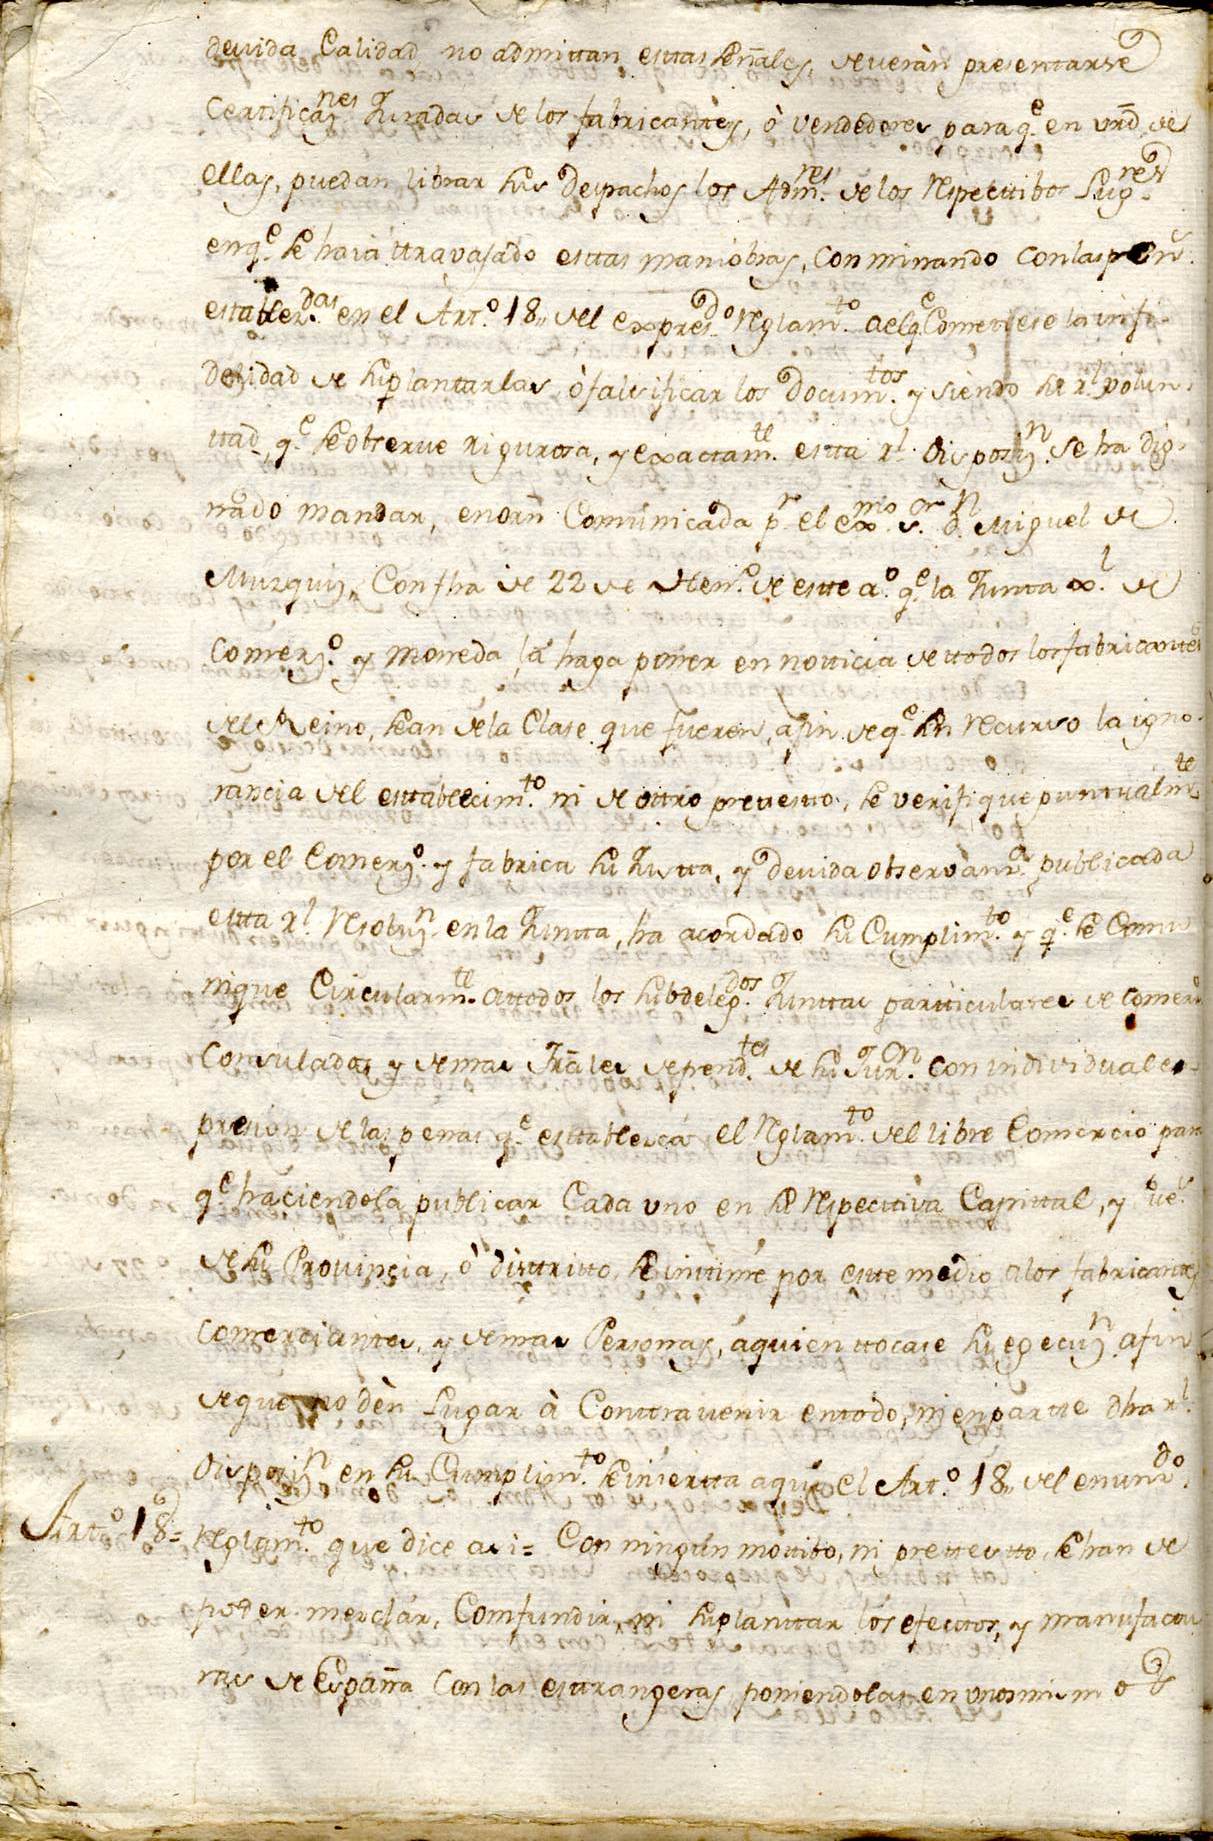 devida Calidad no admittan esttas señales, deveràn presentarse
Certificanes Juradas de los fabricantes, ò vendedores para qe. en vrd. de
ellas, puedan librar sus Despachos los Admres. de los respecttibos Lugres.
en qe. se haia ttravajado esttas maniobras, Conminando Con las pen.
establecdas. en el Artº. 18,, del expresdo. Reglamto. a el q Comettiese la infi-
delidad de suplantarlas, ò falsificar los Documtos. y siendo su rl. volun-
ttad, qe. se observe rigurosa, y exactamte. estta rl. Disposiзn. se ha dig-
nado mandar, en orñ Comunicada pr. el exmo. sr. Dn. Miguel de
Muzquiz, Con fha de 22 de Henº. de estte aº. qe. la Juntta xl. de
Comerzº. y Moneda la haga poner en notticia de ttodos los fabricanttes
del Reino, sean de la Clase que fueren, a fin de qe. sin recurso la igno-
rancia del esttablecimto. ni de ottro prettestto, se verifique puntualmte
por el Comerzº. y fabrica su Justta, y devida observanza. publicada
estta rl. Resoluzn. en la Juntta, ha acordado su Cumplimto. y qe. se Comu
nique Circularmte. a ttodos los subdelegdos. Junttas partticulares de Comerº
Consulados y demas Trãles dependtes. de su Jurn. con individual es-
presion de las penas qe. esttablesca el Reglamto. del libre Comercio para
qe. haciendola publicar Cada uno en su respecttiva Capittal, y
de su Provinçia, ò disttritto, se inttime por estte medio a los fabricantes
Comerçianttes, y demas Personas, à quien ttocase su egecuzn. a fin
de que no dèn Lugar à Conttravenir en ttodo, ni en partte dha rl.
Disposizn. en su Cumplimto. se insertta aqui el Artº. 18,, del enunzdo.
Arttº. 18= Reglamto. que dice asi= Con ningun mottibo, ni prettestto, se han de
poder mezclar, Comfundir, ni suplanttar los efecttos, y manufactu
ras de España Con las esttrangeras, poniendolas en unos mismos